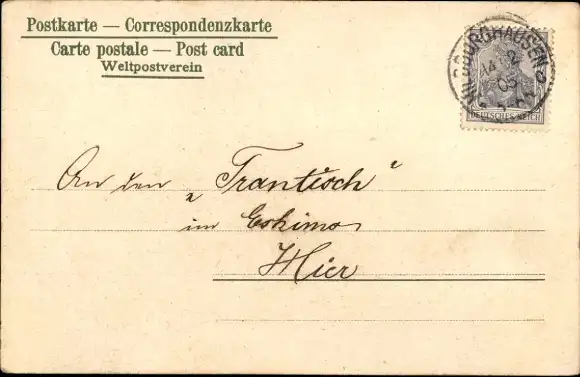 Postkarte — Correspondenzkarte
Carte postale — Post card
Weltpostverein
HILDBURGHAUSEN
14 2
05
DEUTSCHES REICH
An den „Trantisch“
im Eskimo
Hier